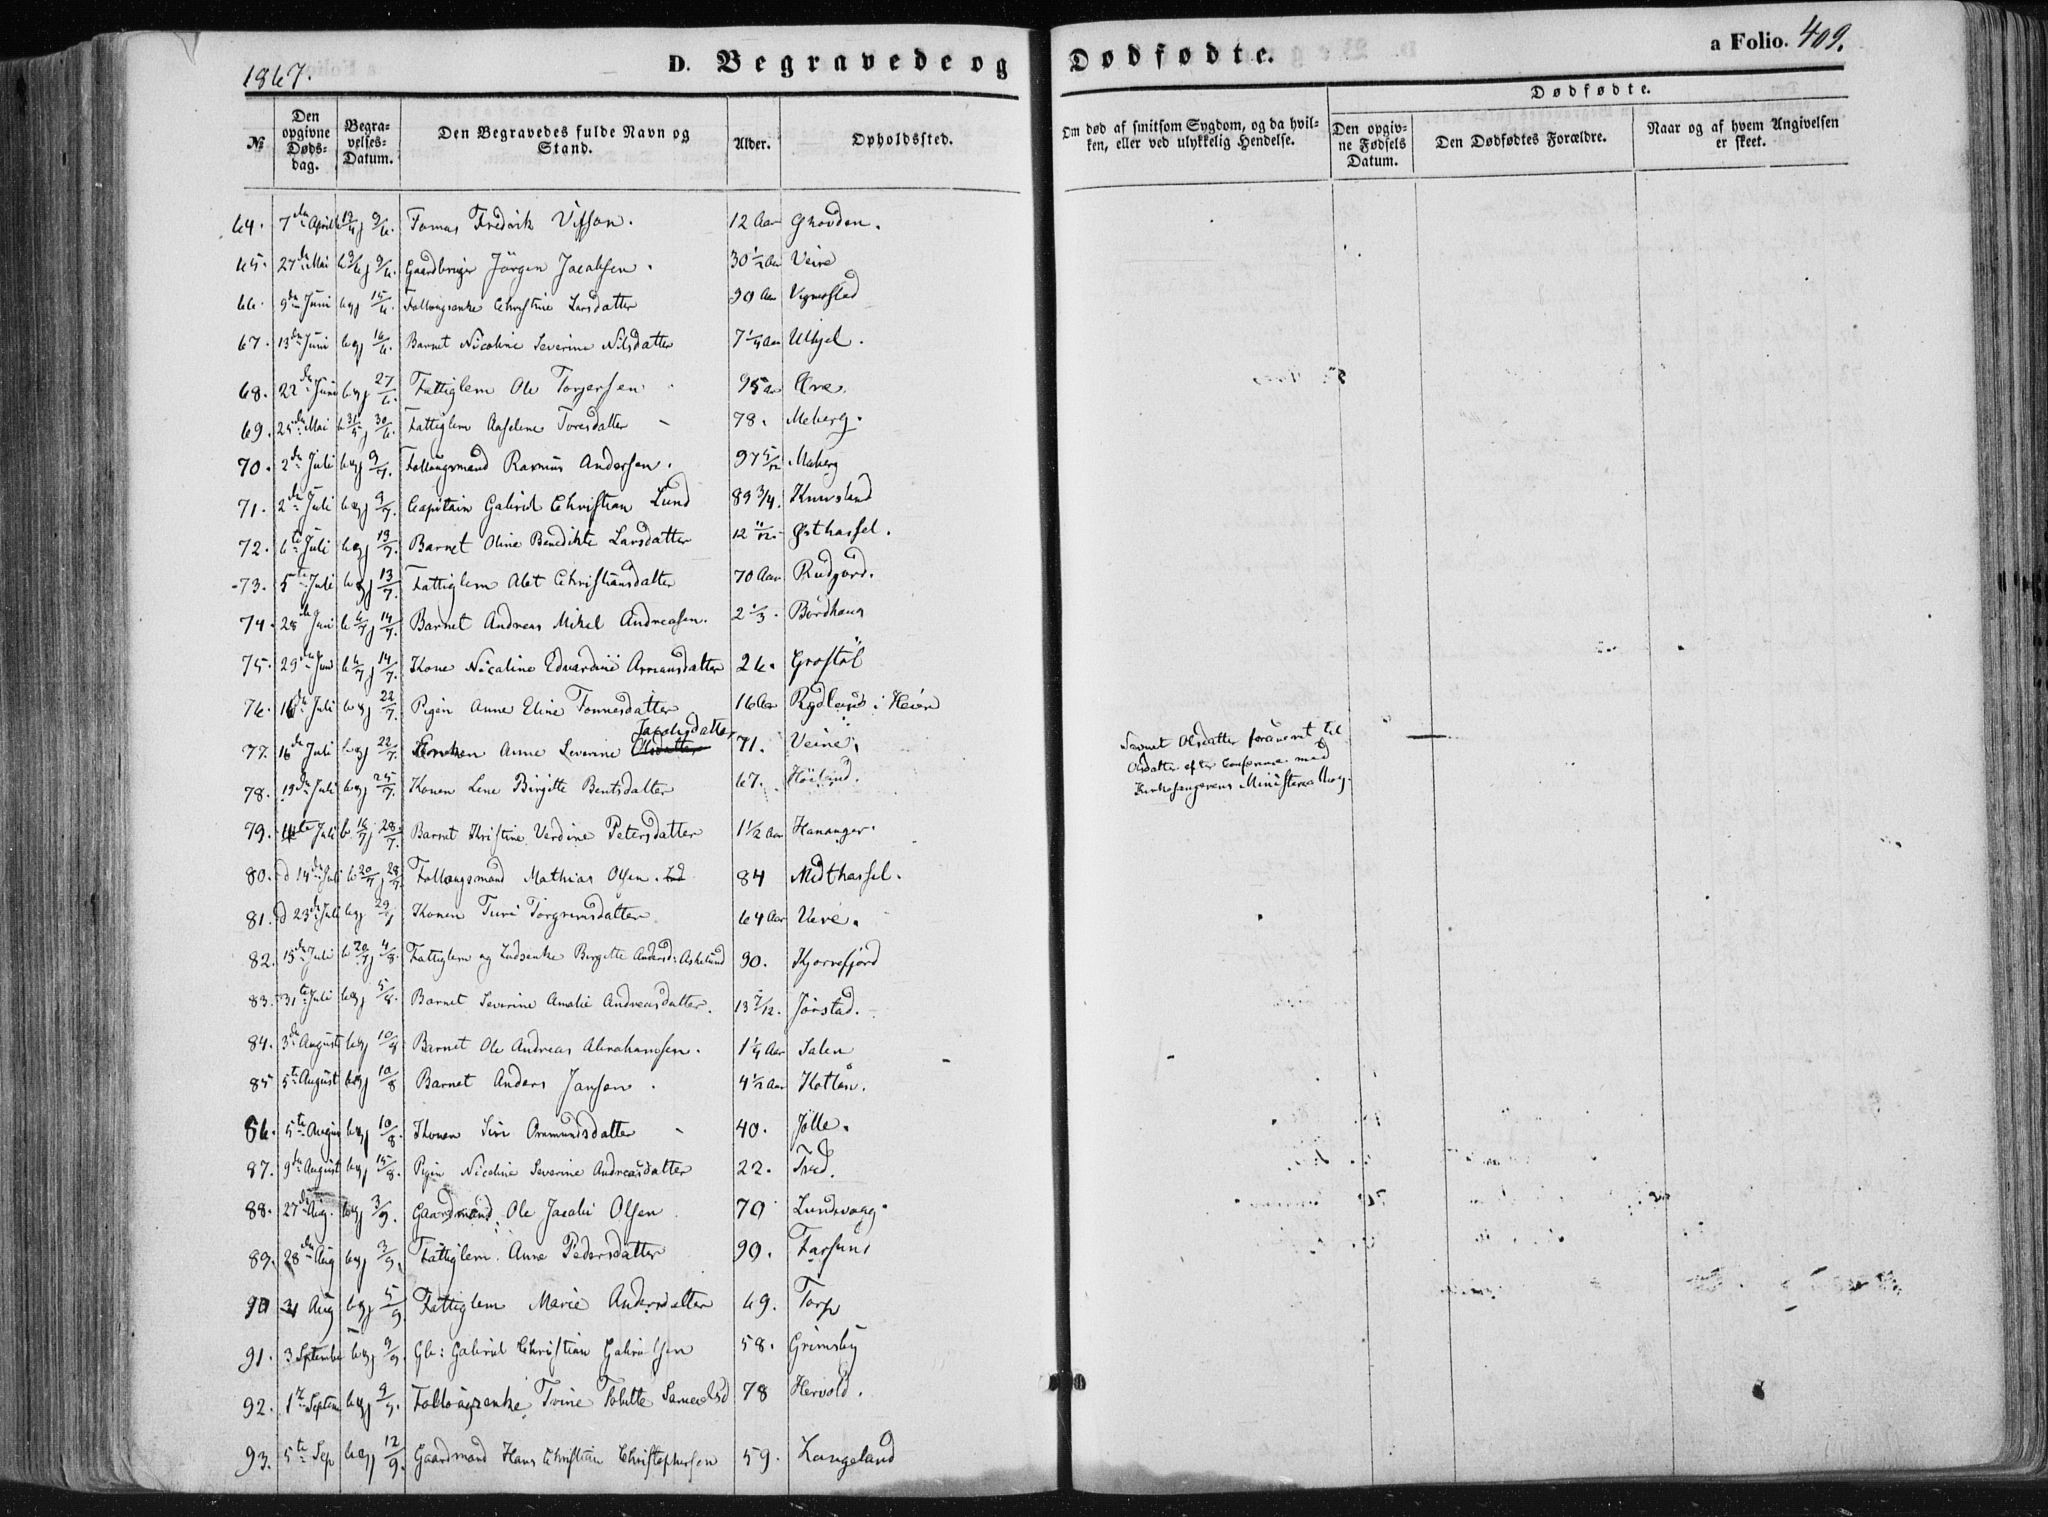 1867. D. Begravede og Dødfødte. a Folio. 409.
№ Den opgivne Døds-dag. Begra-velses-Datum. Den Begravedes fulde Navn og Stand. Alder. Opholdssted. Om død af smitsom Sygdom, og da hvil-ken, eller ved ulykkelig Hendelse. Dødfødte. Den opgiv-ne Fødsels Datum. Den Dødfødtes Forældre. Naar og af hvem Angivelsen er skeet.
64. 7de April b 13/4 j 9/6. Tomas Fredrik 12 Aar
65. 27de Mai b 3/6 j 9/6. Gaardbruger Jörgen Jacobsen. 30 1/2 Aar Veire
66. 9de Juni b og j 15/6. Follougsenke Christine Larsdatter 90 Aar Vigmostad
67. 13de Juni b og j 16/6. Barnet Nicoline Severine Nilsdatter 7 1/4 Aar
68. 22de Juni b og j 27/6. Fattiglem Ole Torjersen 95 Aar Ore.
69. 25de Mai b 31/5 j 30/6. Fattiglem Anselene Toresdatter 78. Meberg.
70. 2de Juli b og j 9/7. Follougsmand Rasmus Andersen. 97 5/12 Meberg
71. 2de Juli b og j 9/7. Capitain Gabriel Christian Lund 89 3/4. Knivsland
72. 6te Juli b og j 13/7. Barnet Oline Benedikte Larsdatter 12 11/12. Østhassel.
73. 5te Juli b og j 13/7. Fattiglem Alet Christiansdatter 70 Aar Rudjord.
74. 28de Juni b 6/7 j 14/7. Barnet Andreas Mikel Andreasen. 2 1/3. Bordhaug
75. 29de Juni b 6/7 j 14/7. Kone Nicoline Edvardine 26. Grostöl
76. 16de Juli b og j 22/7. Pigen Anne Eline Tonnesdatter 16 Aar Rydland i Heien
77. 16de Juli b og j 22/7. Anne Severine Olsdatter Jacobsdatter 71. Veire. Navnet Olsdatter forandret til
datter efter Conferance med
Kirkesangerens Ministerialbog.
78. 19de Juli b og j 25/7. Konen Lene Birgitte Bentsdatter 67. Höiland.
79. 11te Juli b 16/7 j 28/7. Barnet Kristine Verdine Petersdatter 1 1/2 Aar Hananger.
80. d 14de Juli b 20/7 j 28/7. Follougsmand Mathias Olsen. 84 Midthassel.
81. d 23de Juli b og j 29/7 Konen Turi Torgrimsdatter 64 Aar Vere.
82. 15de Juli b 20/7 j 4/8. Fattiglem og Birgitte Andersd: Askelund 90. Kjørrefjord
83. 31te Juli b og j 5/8. Barnet Severine Amalie Andreasdatter. 13 7/12. Jörstad.
84. 3de August b og j 10/8 Barnet Ole Andreas Abrahamsen. 1 1/4 Aar Salen
85 5te August b og j 10/8 Barnet Anders Jansen. 4 1/2 Aar
86. 5te August b og j 10/8. Konen Siri Omundsdatter 40. Jölle.
87. 9de August b og j 15/8. Pigen Nicoline Severine Andreasdatter 22.
88. 27de Aug. b og j 3/9. Gaardmand Ole Jacob Olsen 70 Lundevaag.
89. 28de Aug b og j 3/9. Fattiglem. Anne Pedersdatter 90. Farsund
90 31 Aug b og j 5/9 Fattiglem Marie Andersdatter 69. Torp
91. 3 September b og j 9/9. Gbr: Gabriel Christian Gabrielsen 58. Grimsby
92. 1te Septem b og j 9/9. Follougsenke Trine Tobitte Samuelsd 78 Hervold.
93. 5te Sep b og j 12/9. Gaardmand Hans Christian Christophersen 59. Langeland